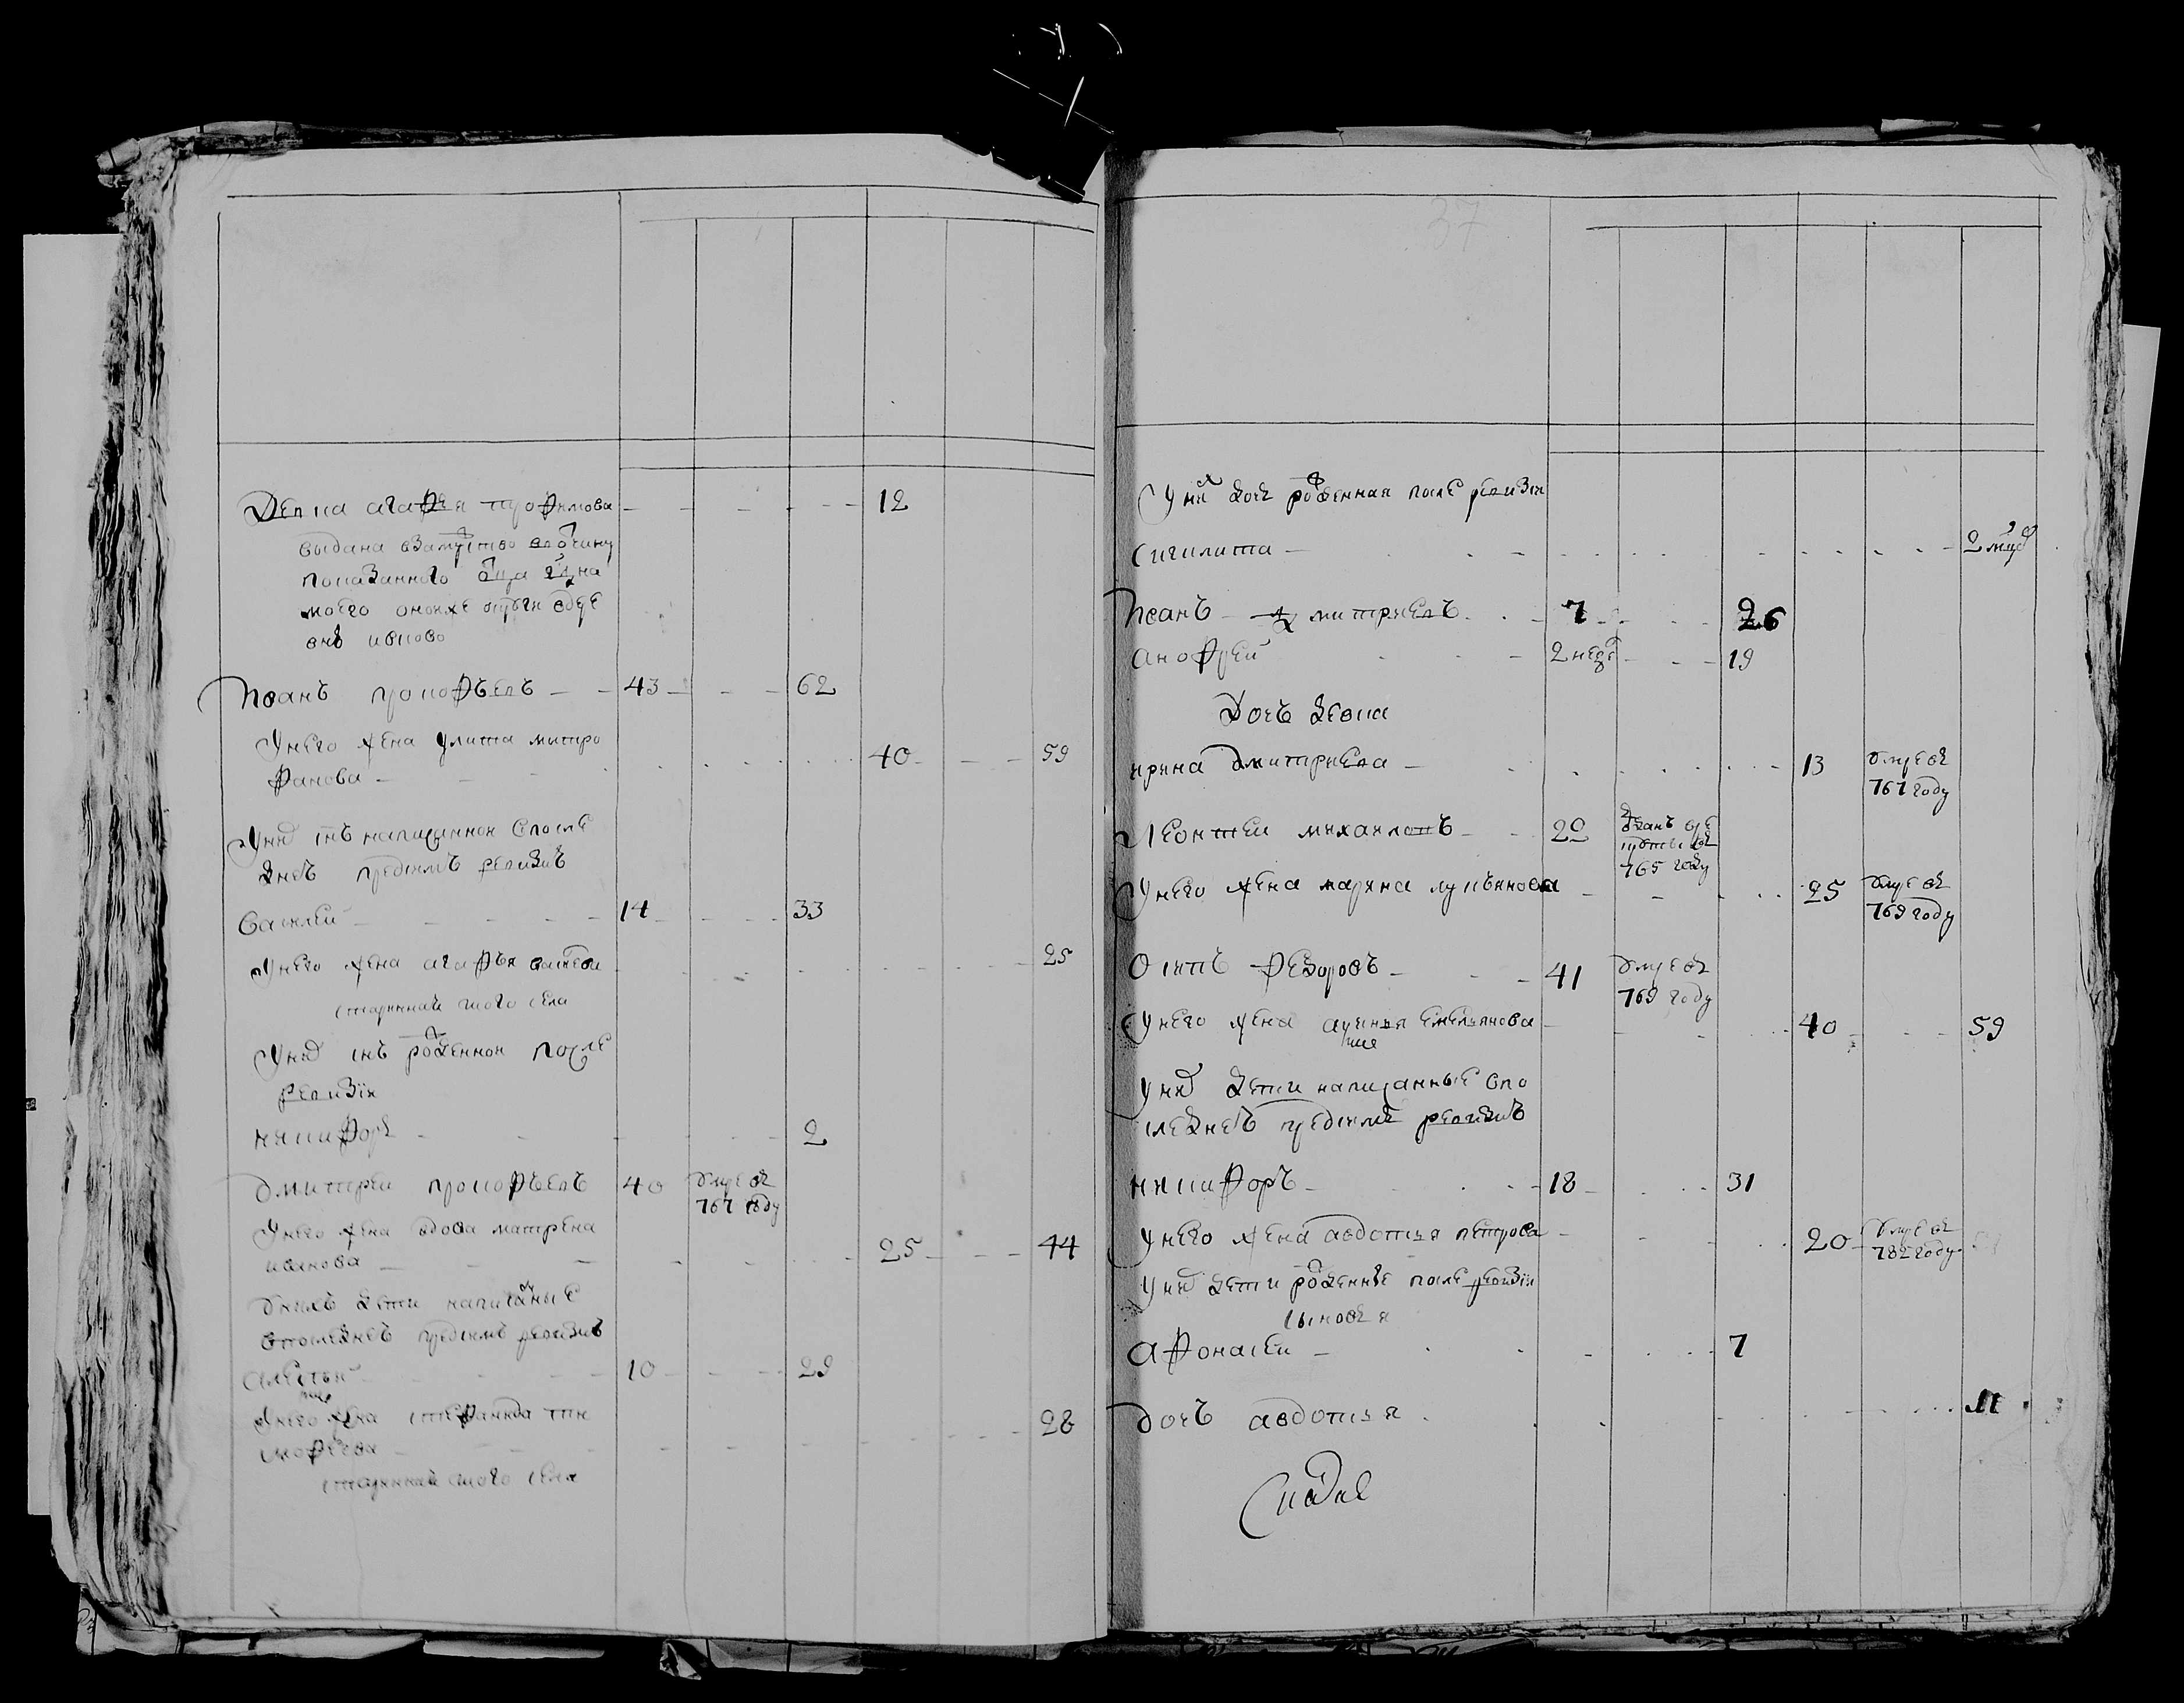 Девка агафея трофимова - - - - - 12
выдана взамуство вводчину
показанного отца
моего оножъ округи в дере
внѣ
Иванъ прокофьевъ - - 43 - - - 62
У него жена улита митро
фанова - - - 40 - - - 59
У них снъ написанной впосле
днеѣ пред симъ ревизиѣ
Василей - - - 14 - - - 33
У него жена агафья - - - 25
старинная того села
У них снъ рожденной после
ревизiи
никифоръ - - - 2
дмитреи прокофьевъ 40 умре въ
767 году
У него жена вдова матрена
иванова - - - 25 - - - 44
У них дети написаные
впоследнеѣ пред симъ ревизиѣ
алексеи - - - 10 - - - 29
У него жена степанида ти
мофеева - - - 28
старинная того села
37
У них дочь рожденная после ревизiи
сигклита - - - 2 мцо
Иванъ дмитриевъ - - 7 - - - 26
анофреи - - 2 неде - - - 19
Дочь девка
ирина дмитриева - - - 13 умре въ
767 году
Леонтеи михаиловъ - - 22 отданъ в ре
круты въ
765 году
У него жена марина лукьянова - - - 25 умре въ
769 году
Осипъ Федоровъ - - - 41 умре въ
769 году
У него жена аксинья емельянова - - - 40 - - - 59
У них дети написанные впо
следнеѣ пред симъ ревизиѣ
никифоръ - - - 18 - - - 31
У него жена авдотья петрова - - - 20 умре въ
782 году
У них дети рожденные после ревизiи
сыновья
афонасеи - - - 7
дочь авдотья - - - 11